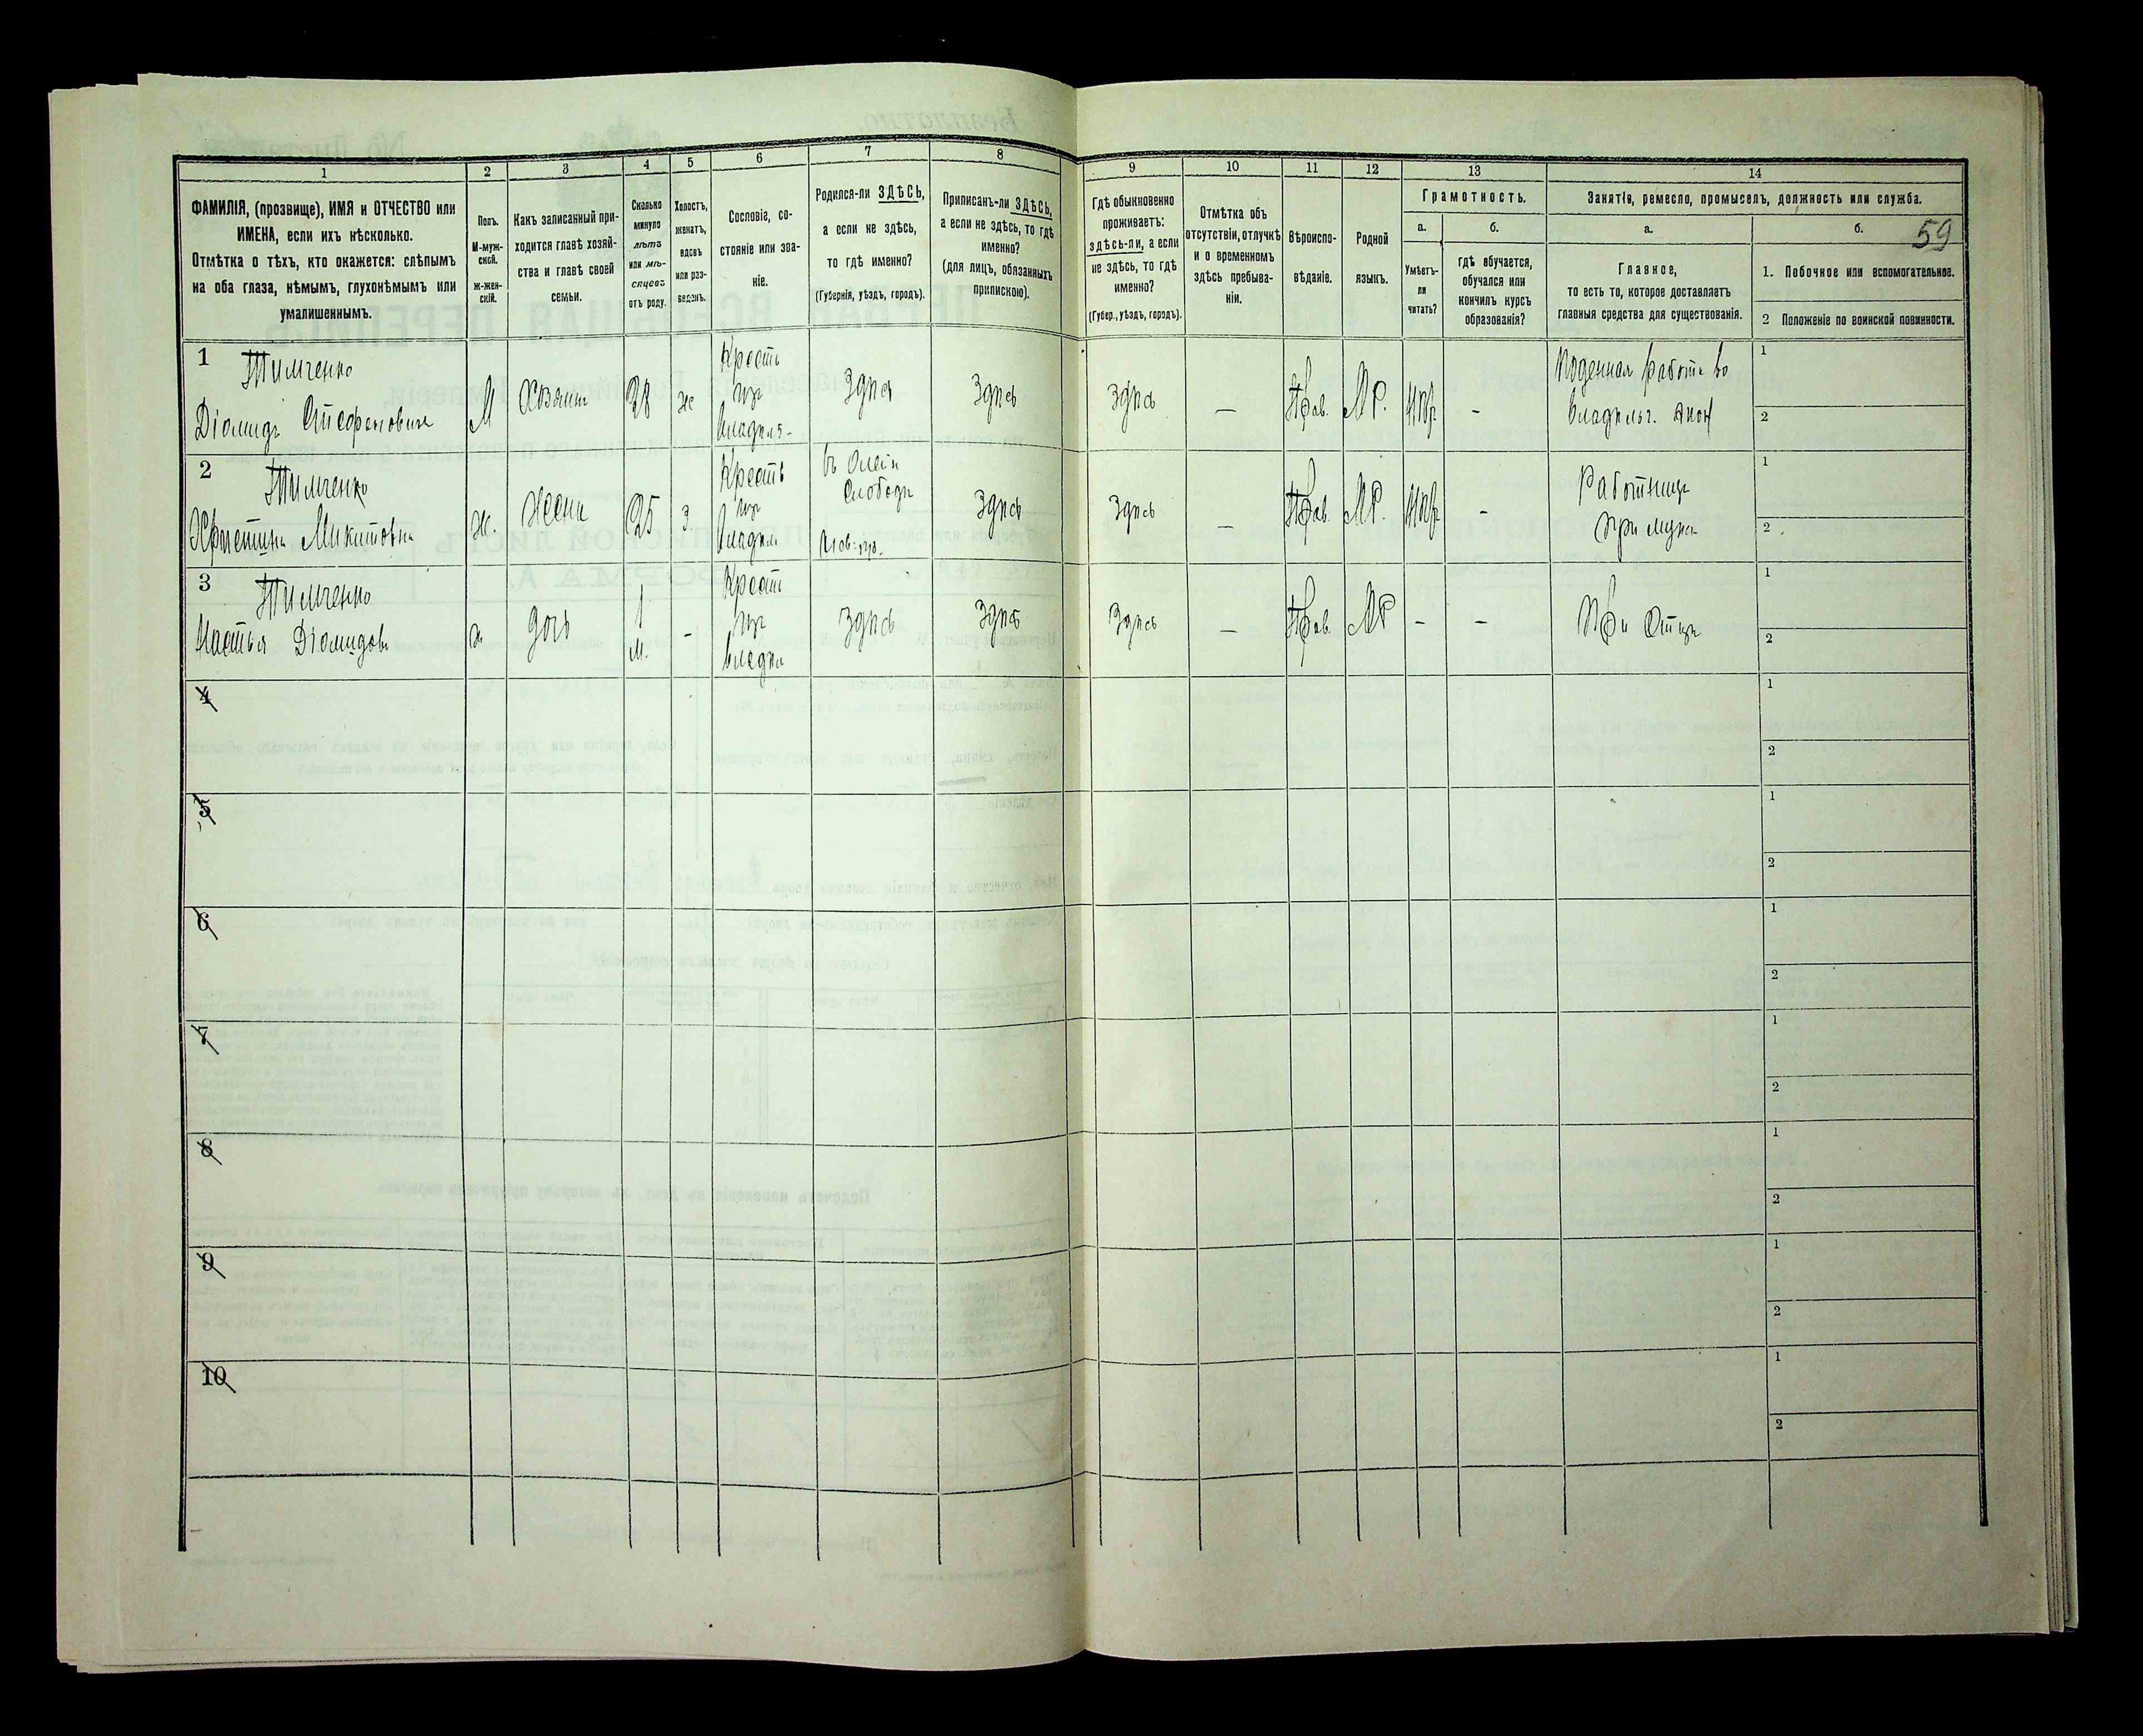 1
ФАМИЛІЯ, (прозвище), ИМЯ и ОТЧЕСТВО или
ИМЕНА, если ихъ нѣсколько.
Отмѣтка о тѣхъ, кто окажется: слѣпымъ
на оба глаза, нѣмымъ, глухонѣмымъ или
умалишеннымъ.
2
Полъ.
М-муж-
ской.
ж-жен-
скій.
3
Какъ записанный при-
ходится главѣ хозяй-
ства и главѣ своей
семьи.
4
Сколько
минуло
лѣтъ
или мѣ-
сяцевъ
отъ роду.
5
Холостъ,
женатъ,
вдовъ
или раз-
веденъ.
6
Сословіе, со-
стояніе или зва-
ніе.
7
Родился-ли ЗДѢСЬ,
а если не здѣсь,
то гдѣ именно?
(Губернія, уѣздъ, городъ).
8
Приписанъ-ли ЗДѢСЬ,
а если не здѣсь, то гдѣ
именно?
(для лицъ, обязанныхъ
припискою).
9
Гдѣ обыкновенно
проживаетъ:
здѣсь-ли, а если
не здѣсь, то гдѣ
именно?
(Губер., уѣздъ, городъ).
10
Отмѣтка объ
отсутствіи, отлучкѣ
и о временномъ
здѣсь пребыва-
ніи.
11
Вѣроиспо-
вѣданіе.
12
Родной
языкъ.
13
Грамотность.
а.
Умѣетъ-
ли
читать?
б.
гдѣ обучается,
обучался или
кончилъ курсъ
образованія?
14
Занятіе, ремесло, промыселъ, должность или служба.
а.
Главное,
то есть то, которое доставляетъ
главныя средства для существованія.
б.
59
1. Побочное или вспомогательное.
2 Положеніе по воинской повинности.
1
Тимченко
Діомидъ
М
Хозяинъ
28
ж
Крестъ
изъ
Владѣл-
Здѣсь
Здѣсь
Здѣсь
—
Прав.
МР.
-
Поденная работа во
владѣльч. экон
1
2
2
Тимченко
Христина Микитовна
ж.
Жена
25
з
Крестъ
изъ
Владѣл
Слободѣ
Здѣсь
Здѣсь
—
Прав.
МР.
-
Работница
при мужѣ
1
2
3
Тимченко
Настья Діомидов
ж
дочь
1
м.
-
Крест
изъ
владѣл
Здѣсь
Здѣсь
Здѣсь
—
Прав.
МР
-
-
При Отцѣ
1
2
4
1
2
5
1
2
6
1
2
7
1
2
8
1
2
9
1
2
10
1
2